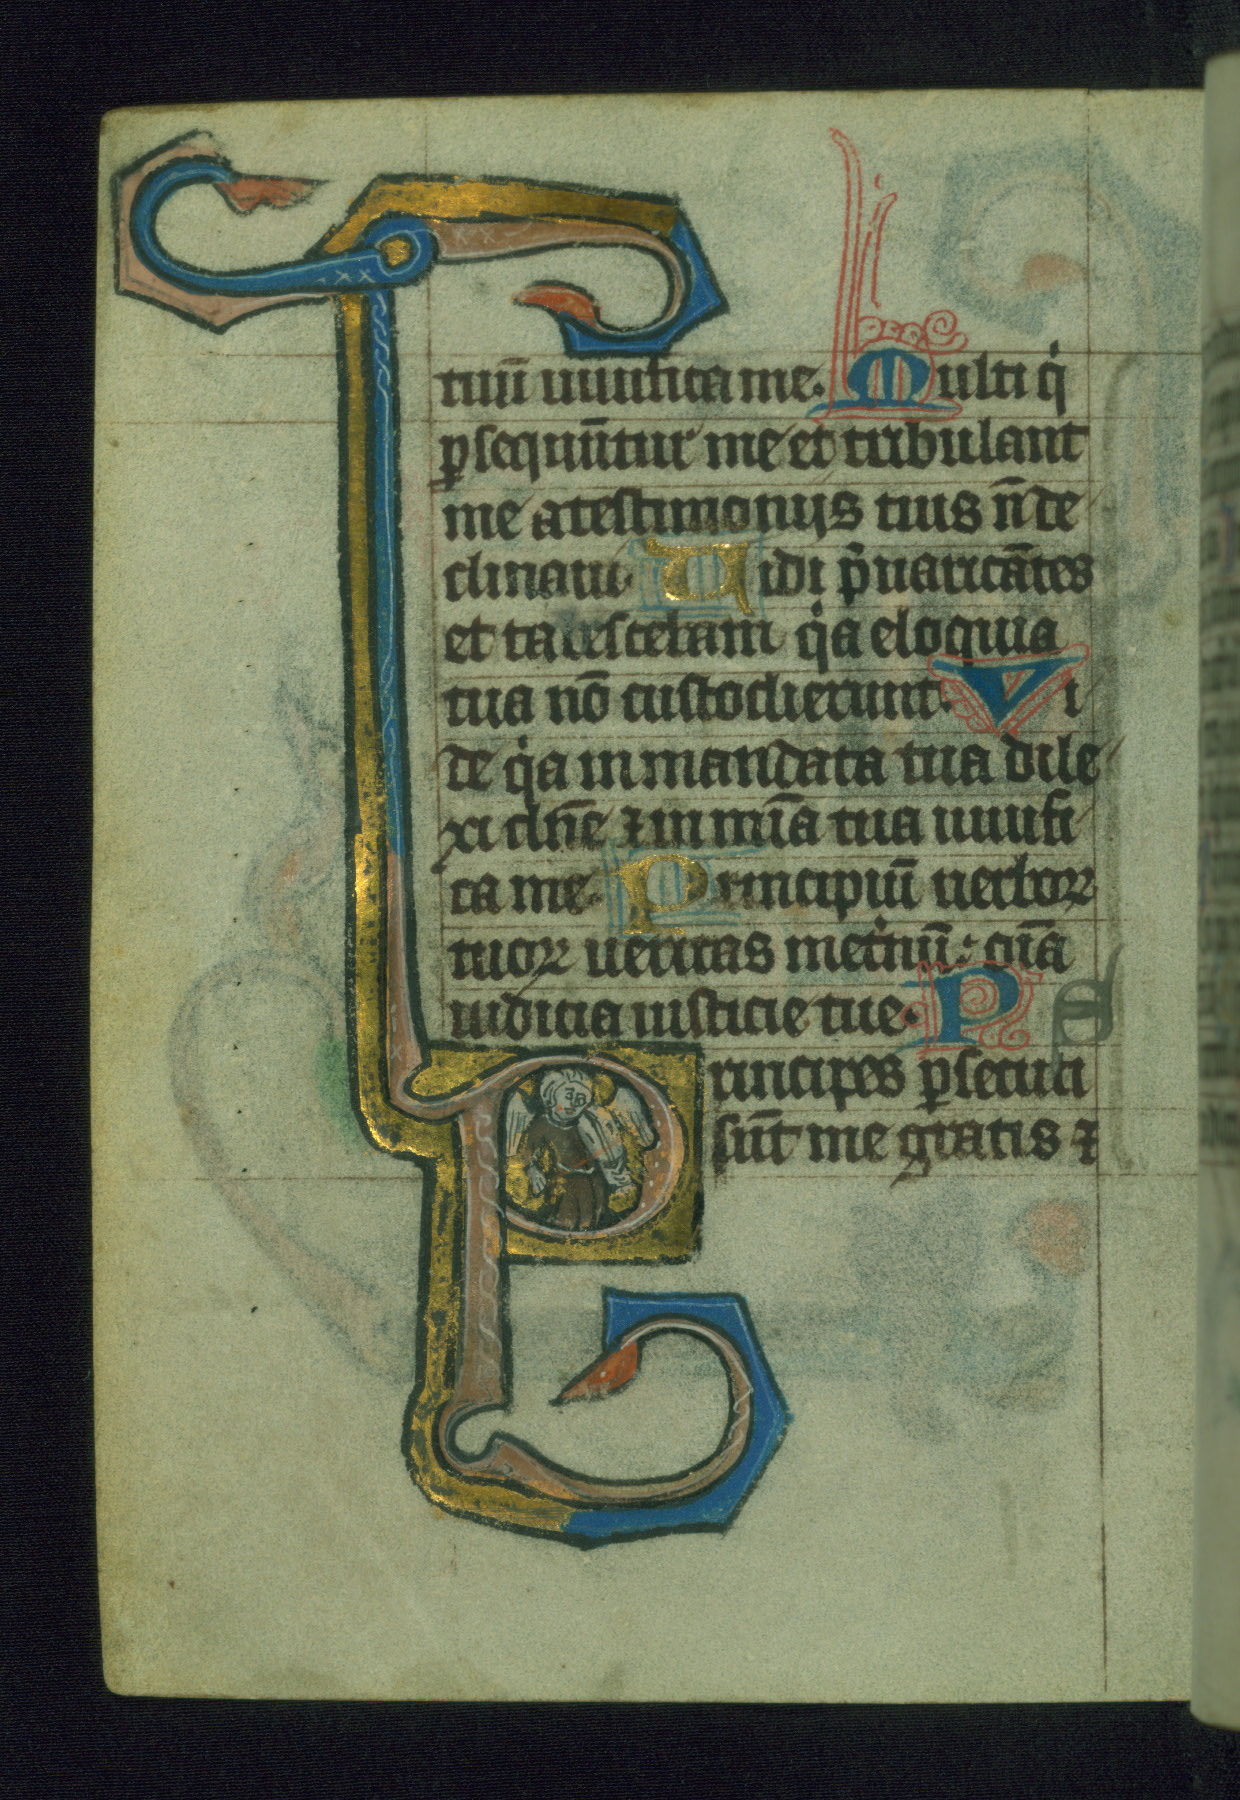 tuū uiuifica me. Multi q̇
ꝑsequūtur me et tribulant
me a testimoniis tuis n̄ de
clinaui. Uidi p̄uaricātes
et tabescebam q̇a eloquia
tua nō custodierunt. Vi
de q̇a in mandata tua dile
xi dn̄e ⁊ in mīa tua uiuifi
ca me. Principiū uerboꝝ
tuoꝝ ueritas in et̾nū: oīa
iudicia iusticie tue. P
rincipes ꝑsecuti
sūt me gratis ⁊